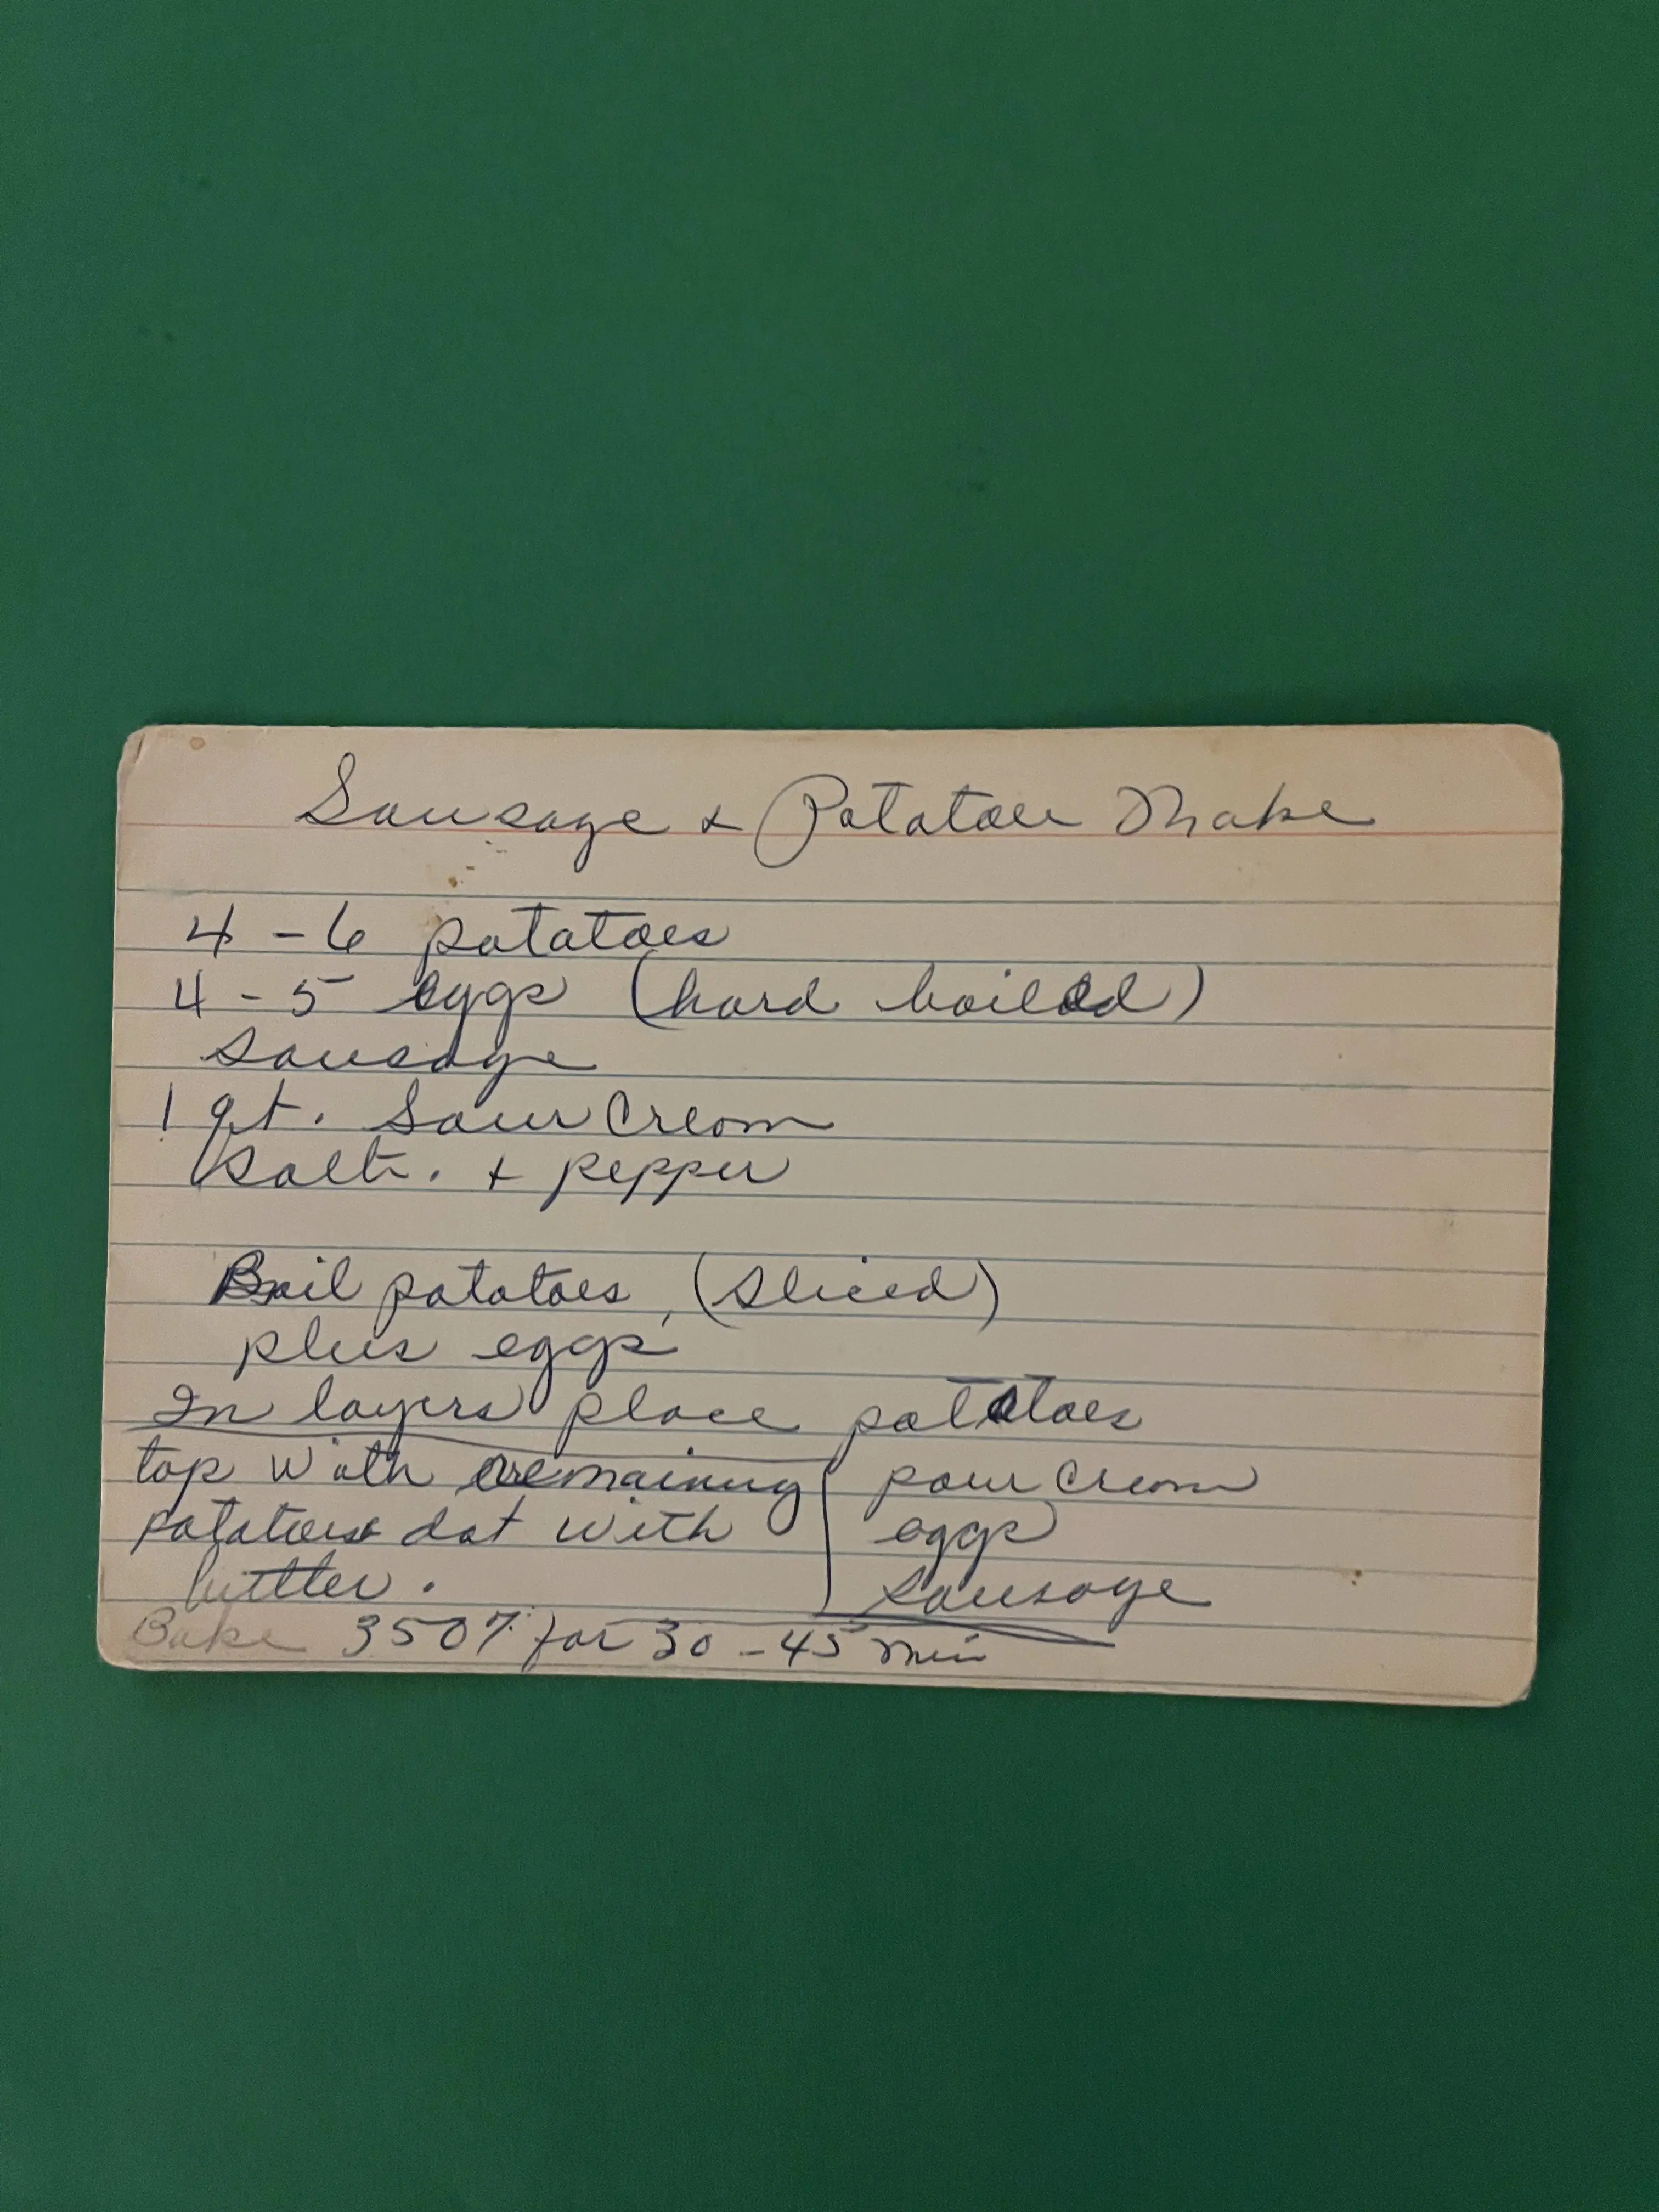 Sausage & Potatoe Make
4 - 6 potatoes
4 - 5 eggs (hard boiled)
Sausage
1 qt. Sour Cream
Salt. & pepper
Boil potatoes, (sliced)
plus eggs
In layers place potatoes
sour Cream
eggs
sausage
top with remaining
potatoes dot with
butter.
Bake 350% for 30 - 45 min